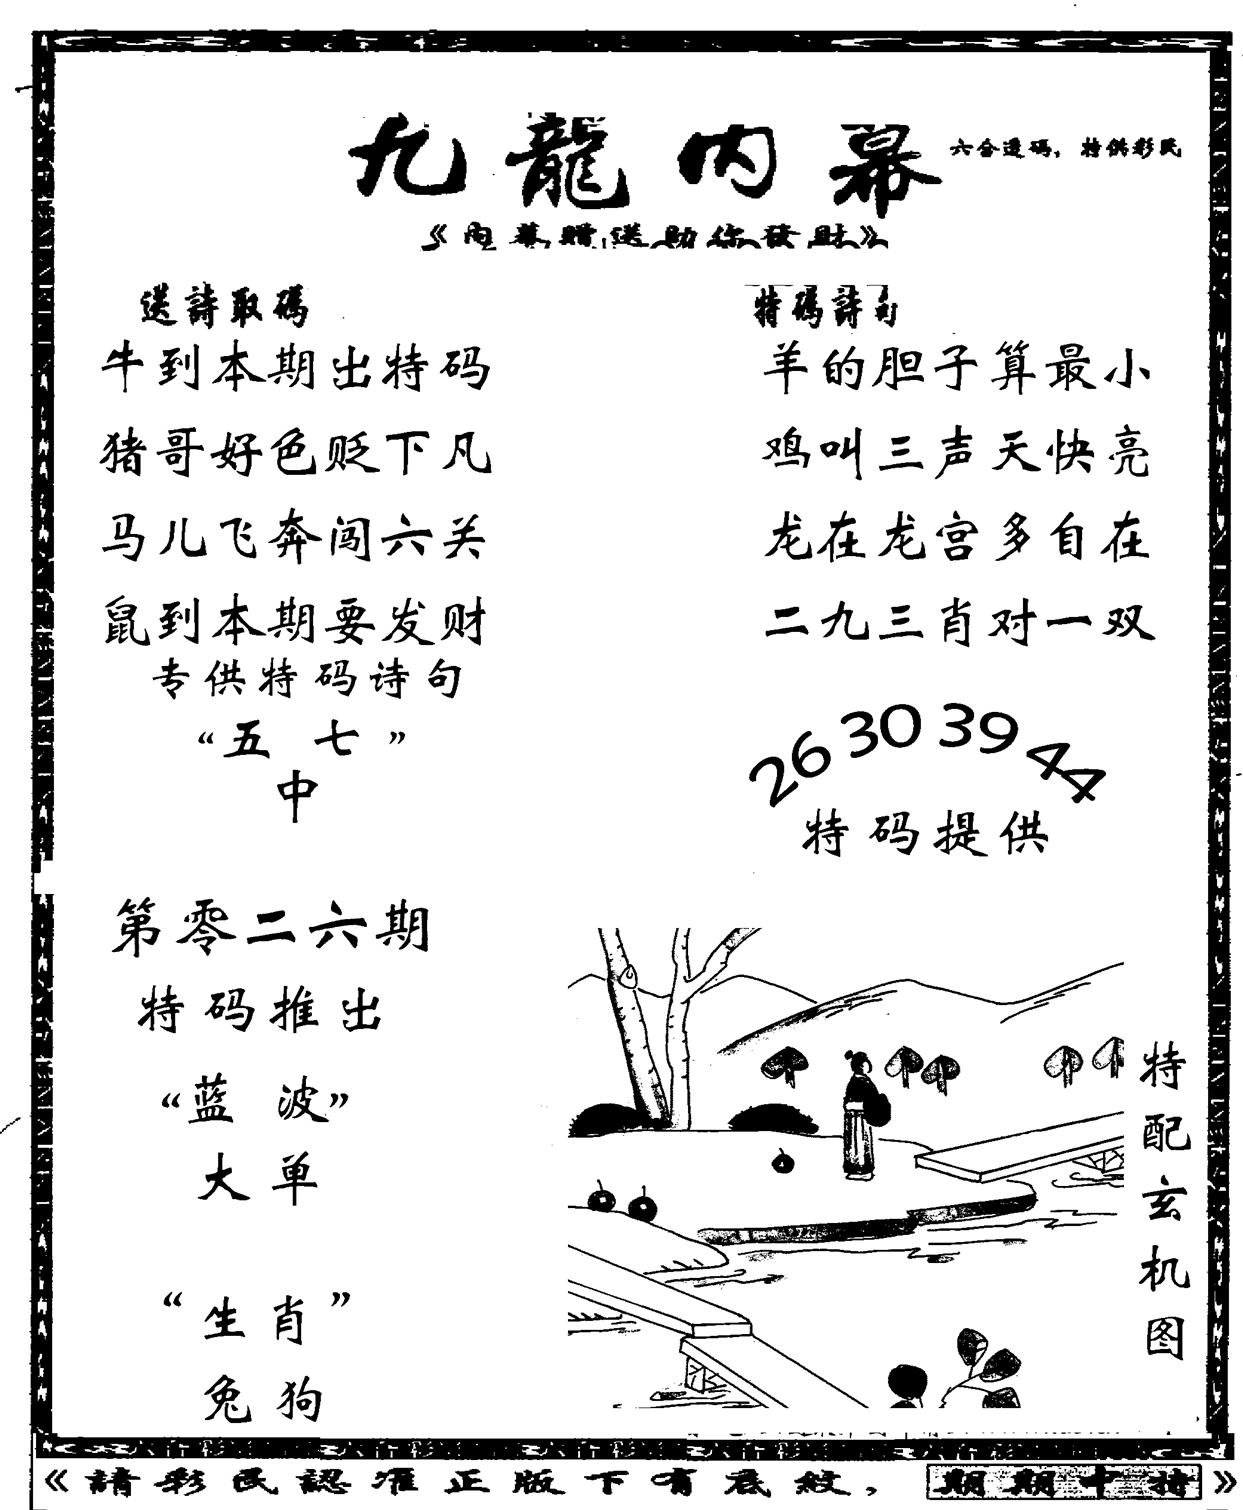 九龍内幕
六合透码，特供彩民
《内幕贈送助你發財》
送詩取碼
牛到本期出特码
猪哥好色贬下凡
马儿飞奔闯六关
鼠到本期要发财
专供特码诗句
“五七”
中
第零二六期
特码推出
“蓝波”
大单
“生肖”
兔狗
特碼詩
羊的胆子算最小
鸡叫三声天快亮
龙在龙宫多自在
二九三肖对一双
26 30 39 44
特码提供
特配玄机图
《請彩民認准正版下有底紋，期期中特》